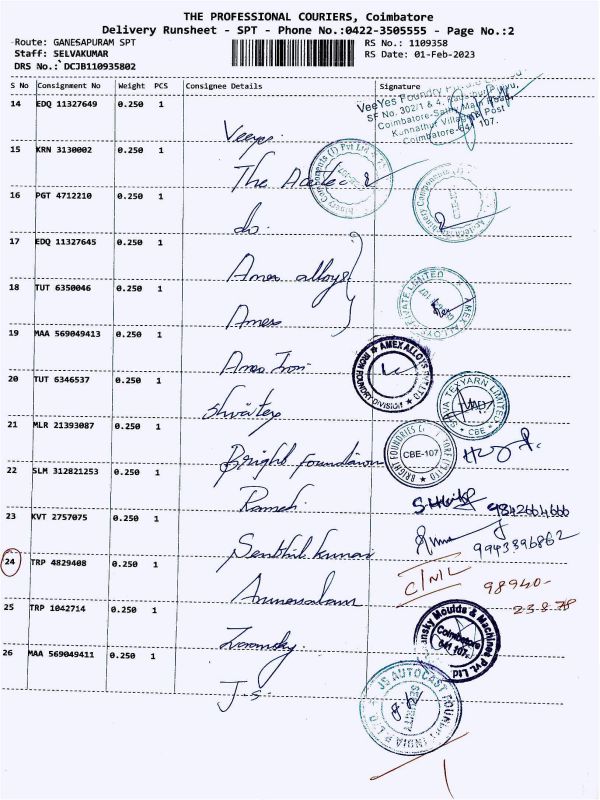 THE PROFESSIONAL COURIERS, Coimbatore
Delivery Runsheet - SPT - Phone No.:0422-3505555 - Page No.:2
Route: GANESAPURAM SPT
RS No.: 1109358
Staff: SELVAKUMAR
RS Date: 01-Feb-2023
DRS No.: DCJB110935802
S No Consignment No Weight PCS Consignee Details Signature
14 EDQ 11327649 0.250 1 Veeyes
VeeYes Foundry
SF No. 302/1 & 4,
Coimbatore- Main Road,
Kunnathur Village Post
Coimbatore-641 107.
15 KRN 3130002 0.250 1 The Acetec
16 PGT 4712210 0.250 1 do.
17 EDQ 11327645 0.250 1 Amex alloys
18 TUT 6350046 0.250 1 Amex
AMEX ALLOYS PRIVATE LIMITED
19 MAA 569049413 0.250 1 Amex Iron
AMEX ALLOYS PVT LTD
IRON FOUNDRY DIVISION
20 TUT 6346537 0.250 1 Shivatex
SHIVA TEXYARN LIMITED
CBE
21 MLR 21393087 0.250 1 Bright Foundries
BRIGHT FOUNDRIES
CBE-107
22 SLM 312821253 0.250 1 Ramesh
9842664666
23 KVT 2757075 0.250 1 Senthil kumar
9943396862
24 TRP 4829408 0.250 1 Arunasalam
C/NIL
98940-
23878
25 TRP 1042714 0.250 1 Zoransky
Zoransky Moulds & Machines Pvt. Ltd
Coimbatore
641 107.
26 MAA 569049411 0.250 1 J.s.
JS AUTOCAST FOUNDRY INDIA P LTD
SECURITY